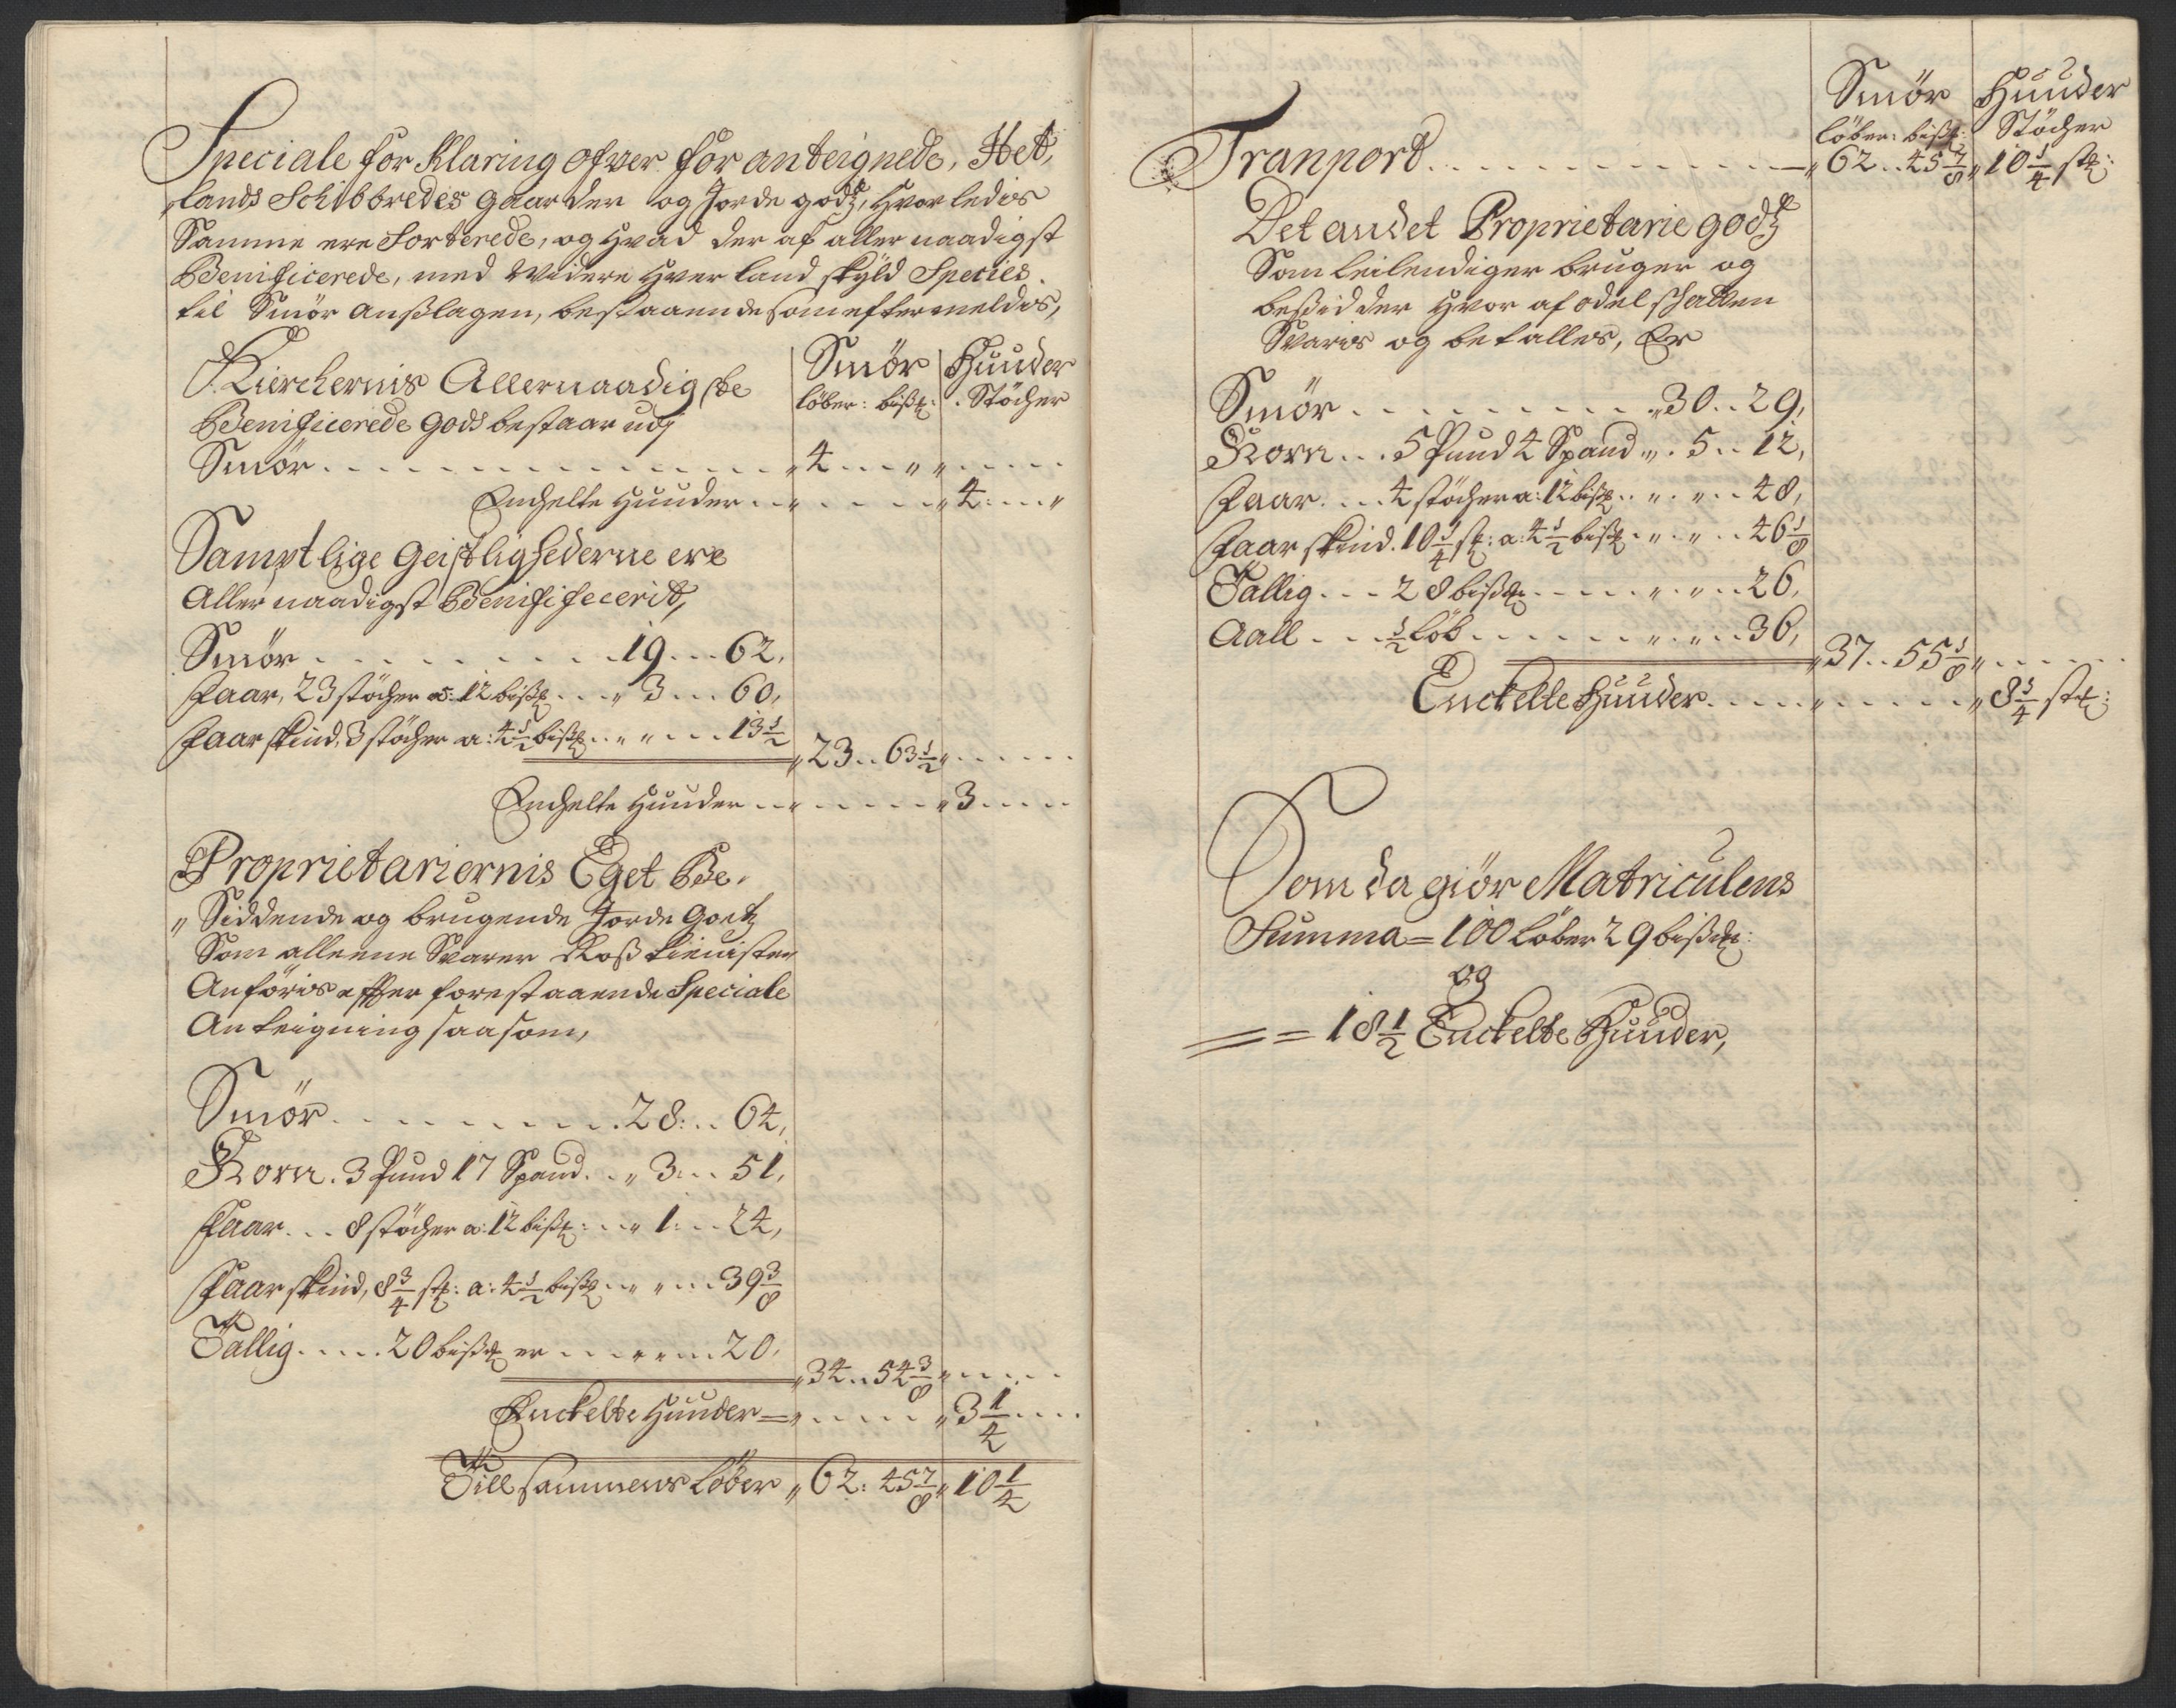 Speciale for Klaring ofver for anteignede, Het,
lands Schibbredes gaarder og Jorde godz, hvorledis
Samme ere Sorterede, og hvad der af aller naadigst
Benificerede, med widere hver land skyld Species
til Smör anßlagen, bestaaende som eftermeldis,
Smör Huuder
löber: bißm: Stöcher
Kierchernis Allernaadigste
Benificerede Gods bestaar udj
Smör . . . . . . „ 4 . . „ „ . . . .
Enchelte huuder . . „ . . . . „ 4: . . „
Samptlige Geistlighederne ere
Aller naadigst Benefifecerit,
Smör . . . . . . 19 . . 62,
Faar, 23 stöcher a: 12 bißm . . „ 3 . . 60,
Faar skind, 3 stöcher a: 4½ bißm . . „ „ . . 13½
„ 23 . . 63½ „ . . . .
Enchelte huuder . . „ . . . . „ 3 . . . .
Proprietariernis Eget Be,
„ Siddende og brugende Jorde Goetz
Som alleene Svarer Roß tienisten
Anföris effter forestaaende Speciale
Anteigning saasom,
Smör . . . . . . 28: . . 64,
Korn . 3 Pund 17 Spand . . „ 3: . . 51,
Faar . . . 8 stöcher a: 12 bißm: . . „ 1: . . 24,
Faar skind, 8¾ stx: a: 4½ bißm . . „ „ . . 39⅜
Tallig . . . . 20 bißm er . . . „ „ . . 20,
„ 34 . . 54⅜ „ . . . .
Enckelte Huuder = „ . . . . „ 3¼ . . . .
Till sammens Löber „ 62: 45⅞ „ 10¼
Smör Huuder
löber: bißm: Stöcher
Tranport . . . . . . „ 62 . . 45⅞ „ 10¼ stx:
Det andet Proprietarie godz
Som leilendiger bruger og
beßidder hvor af odel schatten
Svaris og betalles, Er
Smör . . . . . . „ 30 . . 29,
Korn . . . 5 Pund 4 Spand „ . 5 . . 12,
Faar . . . 4 stöcher a: 12 bißm . . „ . „ . . 48,
Faar skind . 10¼ stx: a: 4½ bißm . „ . „ . . 46⅛
Tallig . . . 28 bißm . . . . „ . „ . . 26,
Aall . . . ½ löb . . . . . „ . „ . . 36,
„ 37 . . 55⅛ „ . . . .
Enckelte Huuder . . . . „ . . . . „ 8¼ stx:
Som da giör Matriculens
Summa = 100 Löber 29 bißm:
og
= = 18½ Enckelte Huuder,